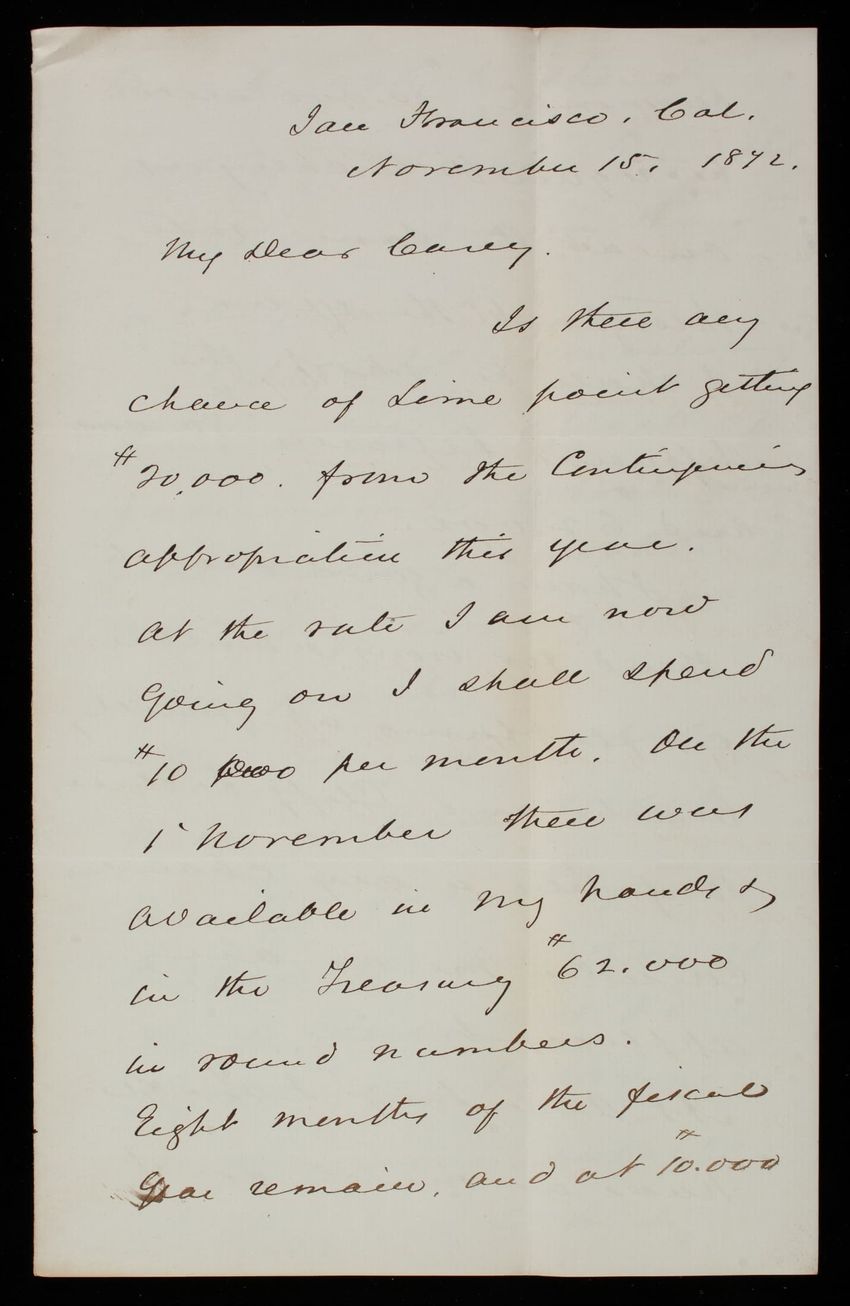 San Francisco. Cal.
November 15, 1872.
My Dear Casey.
Is there any
chance of Lime point getting
$20,000. from the Contingencies
appropriation this year.
At the rate I am now
going on I shall spend
$10 000 per month. On the
1st November there was
available in my hands &
in the Treasury $62.000
in round numbers.
Eight months of the fiscal
year remain, and at $10.000